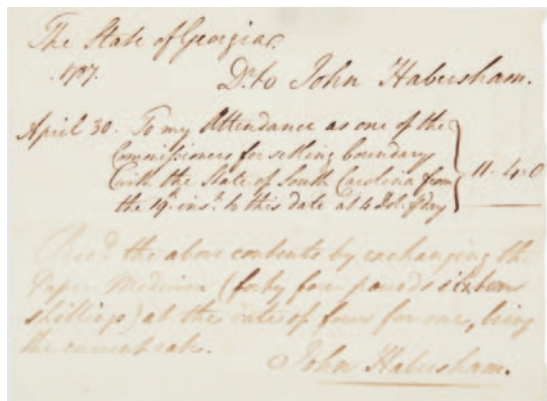 The State of Georgia
1787. Dr. to John Habersham.
April 30. To my Attendance as one of the
Commissioners for settling boundary
with the State of South Carolina from
the 19th inst. to this date at 4 Dol. ⅌ day
11- 4- 0
Rec'd the above contents by exchanging the
Paper Medium (forty four pounds sixteen
shillings) at the rate of four for one, being
the current rate.
John Habersham.